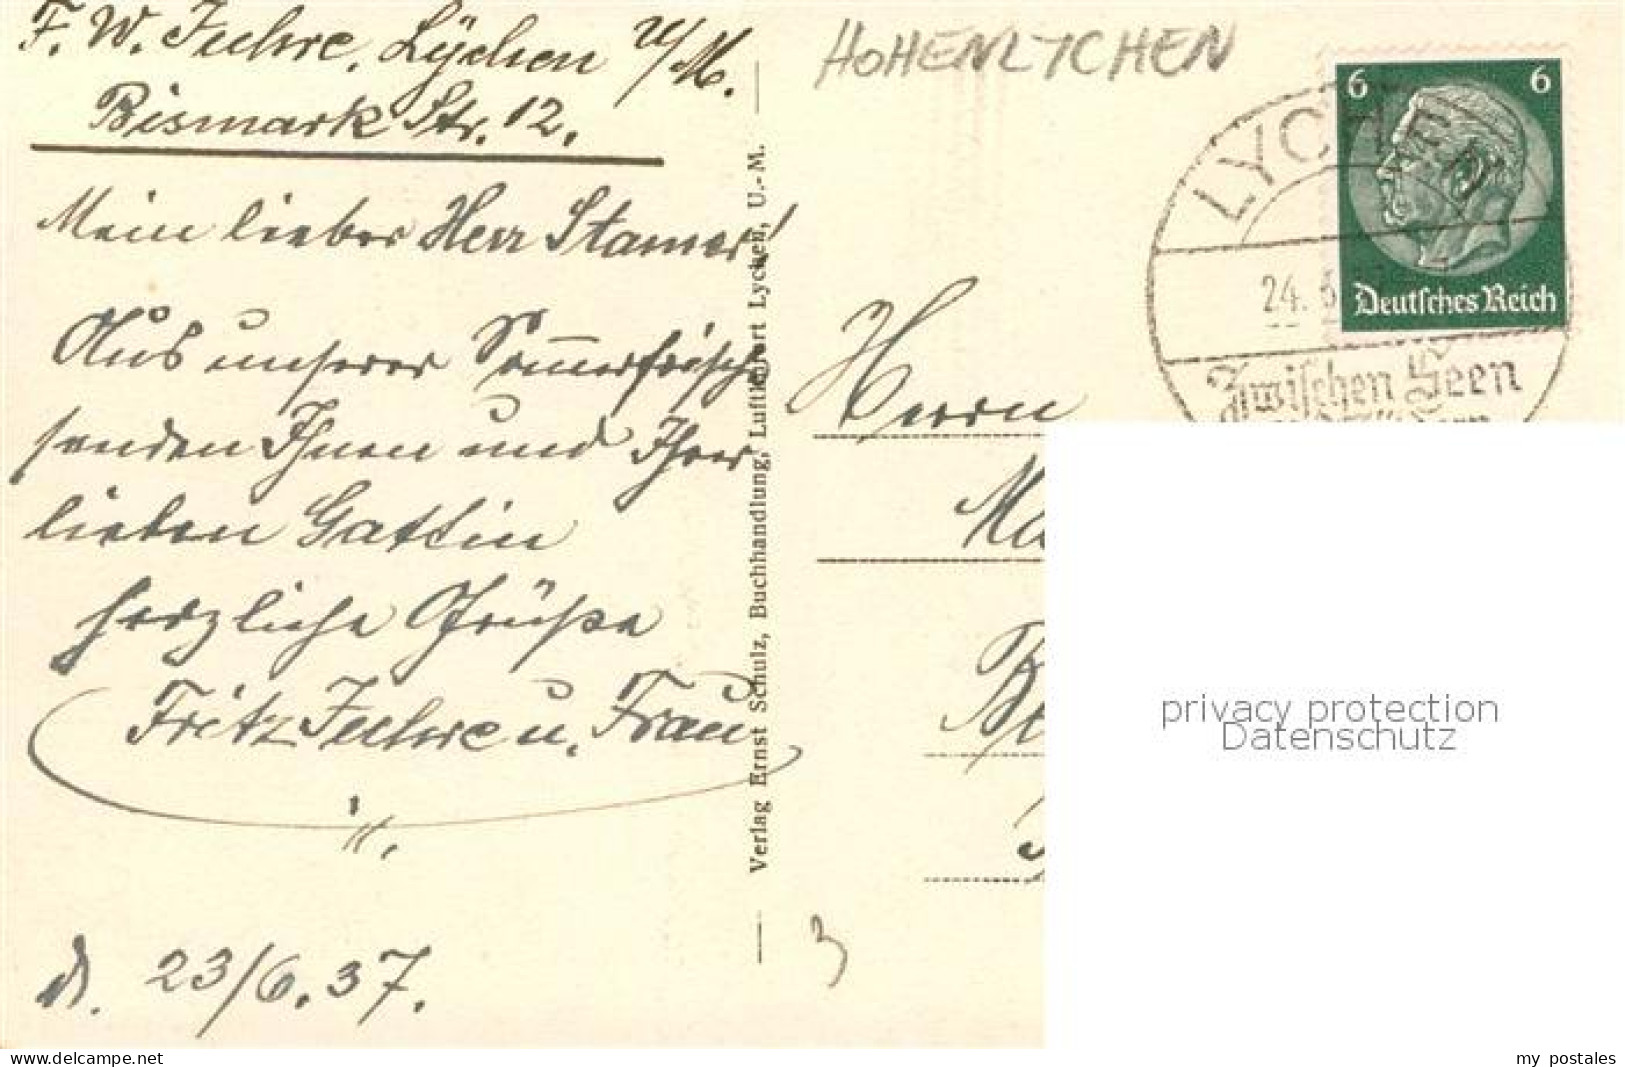 F. W. Fuhre, Lÿchen U/M.
Bismark Str. 12.
Mein lieber Herr Stamer!
Aus unserer Sommerfrische
senden Ihnen und Ihrer
lieben Gattin
herzliche Grüße
Fritz Fuhre u. Frau
d. 23/6.37.
Verlag Ernst Schulz, Buchhandlung, Luftkurort Lychen, U.-M.
HOHENLYCHEN
6 6
Deutsches Reich
LYCHEN
24. 6
Zwischen Seen
Herrn
3
privacy protection
Datenschutz
delcampe.net
my postales